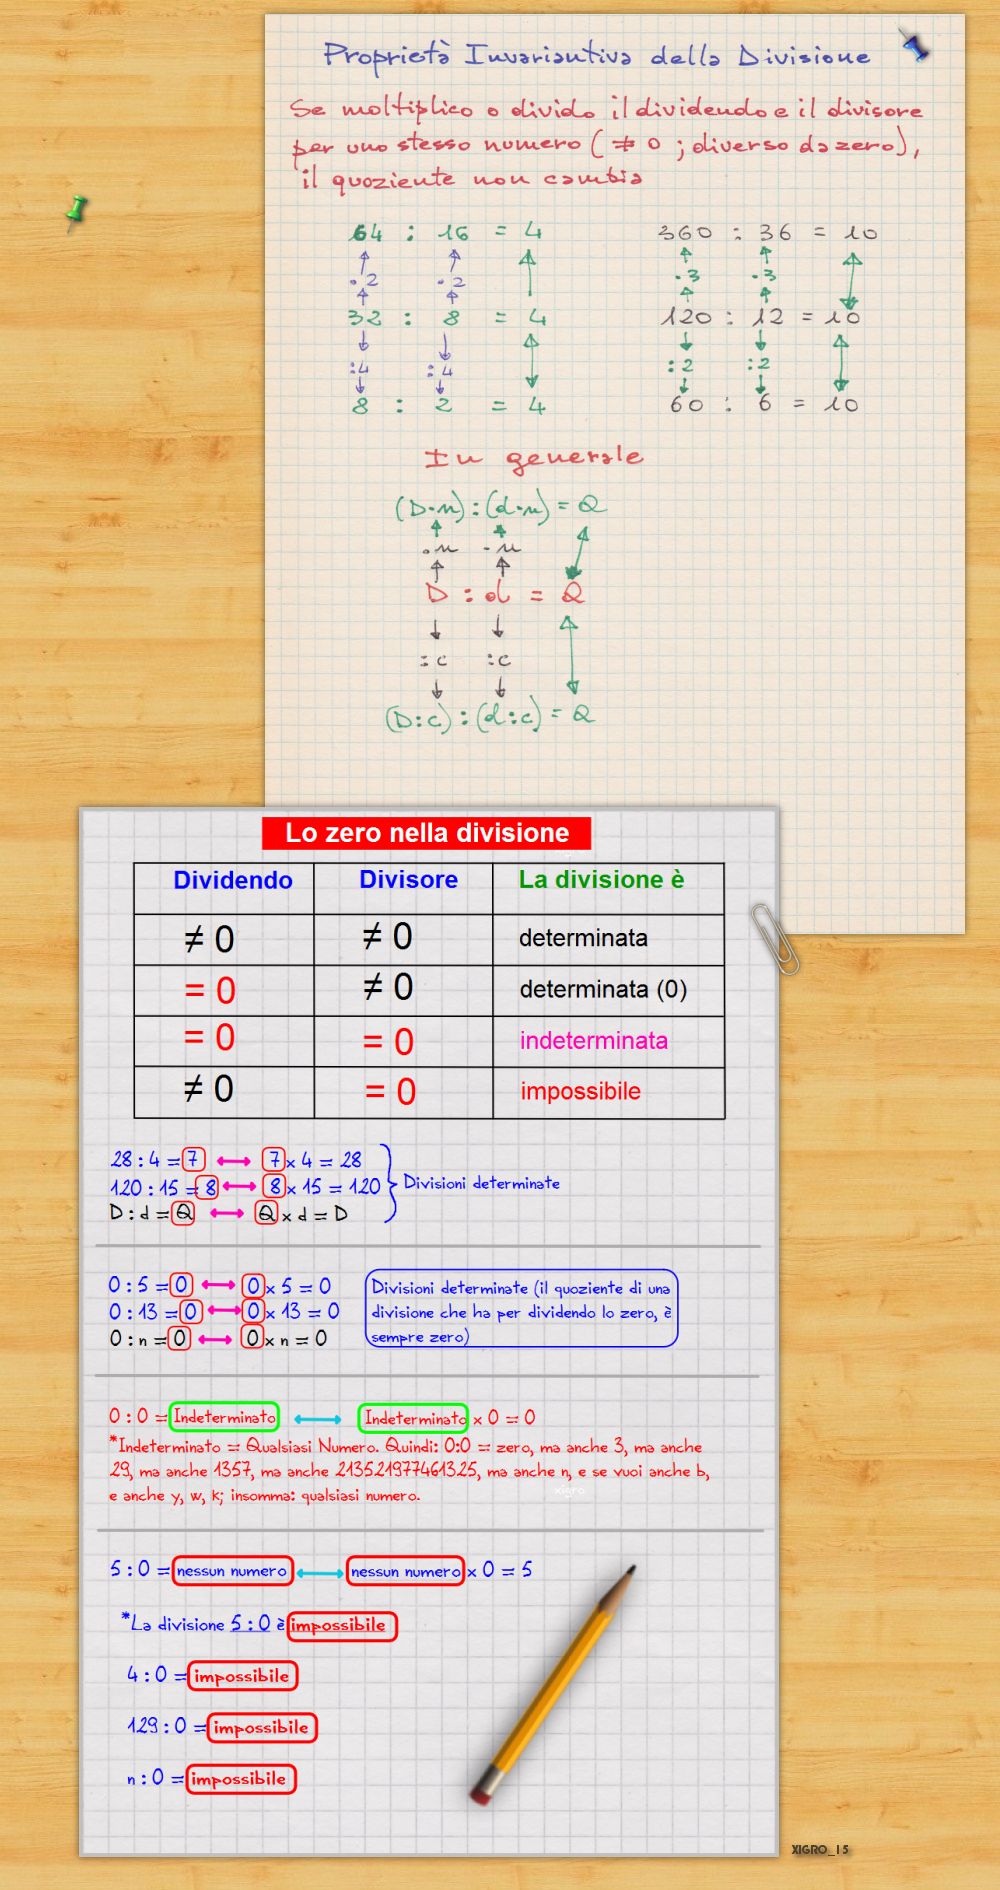 Proprietà Invariantiva della Divisione
Se moltiplico o divido il dividendo e il divisore
per uno stesso numero ( ≠ 0 ; diverso da zero),
il quoziente non cambia
64 : 16 = 4
·2 ·2
32 : 8 = 4
:4 :4
8 : 2 = 4
360 : 36 = 10
·3 ·3
120 : 12 = 10
:2 :2
60 : 6 = 10
In generale
(D·n) : (d·n) = Q
·n ·n
D : d = Q
:c :c
(D:c) : (d:c) = Q
Lo zero nella divisione
Dividendo Divisore La divisione è
≠ 0 ≠ 0 determinata
= 0 ≠ 0 determinata (0)
= 0 = 0 indeterminata
≠ 0 = 0 impossibile
28 : 4 = 7 ↔ 7 x 4 = 28
120 : 15 = 8 ↔ 8 x 15 = 120
D : d = Q ↔ Q x d = D
Divisioni determinate
0 : 5 = 0 ↔ 0 x 5 = 0
0 : 13 = 0 ↔ 0 x 13 = 0
0 : n = 0 ↔ 0 x n = 0
Divisioni determinate (il quoziente di una
divisione che ha per dividendo lo zero, è
sempre zero)
0 : 0 = Indeterminato ↔ Indeterminato x 0 = 0
*Indeterminato = Qualsiasi Numero. Quindi: 0:0 = zero, ma anche 3, ma anche
29, ma anche 1357, ma anche 213521977461325, ma anche n, e se vuoi anche b,
e anche y, w, k; insomma: qualsiasi numero.
xigro
5 : 0 = nessun numero ↔ nessun numero x 0 = 5
*La divisione 5 : 0 è impossibile
4 : 0 = impossibile
129 : 0 = impossibile
n : 0 = impossibile
XIGRO_15